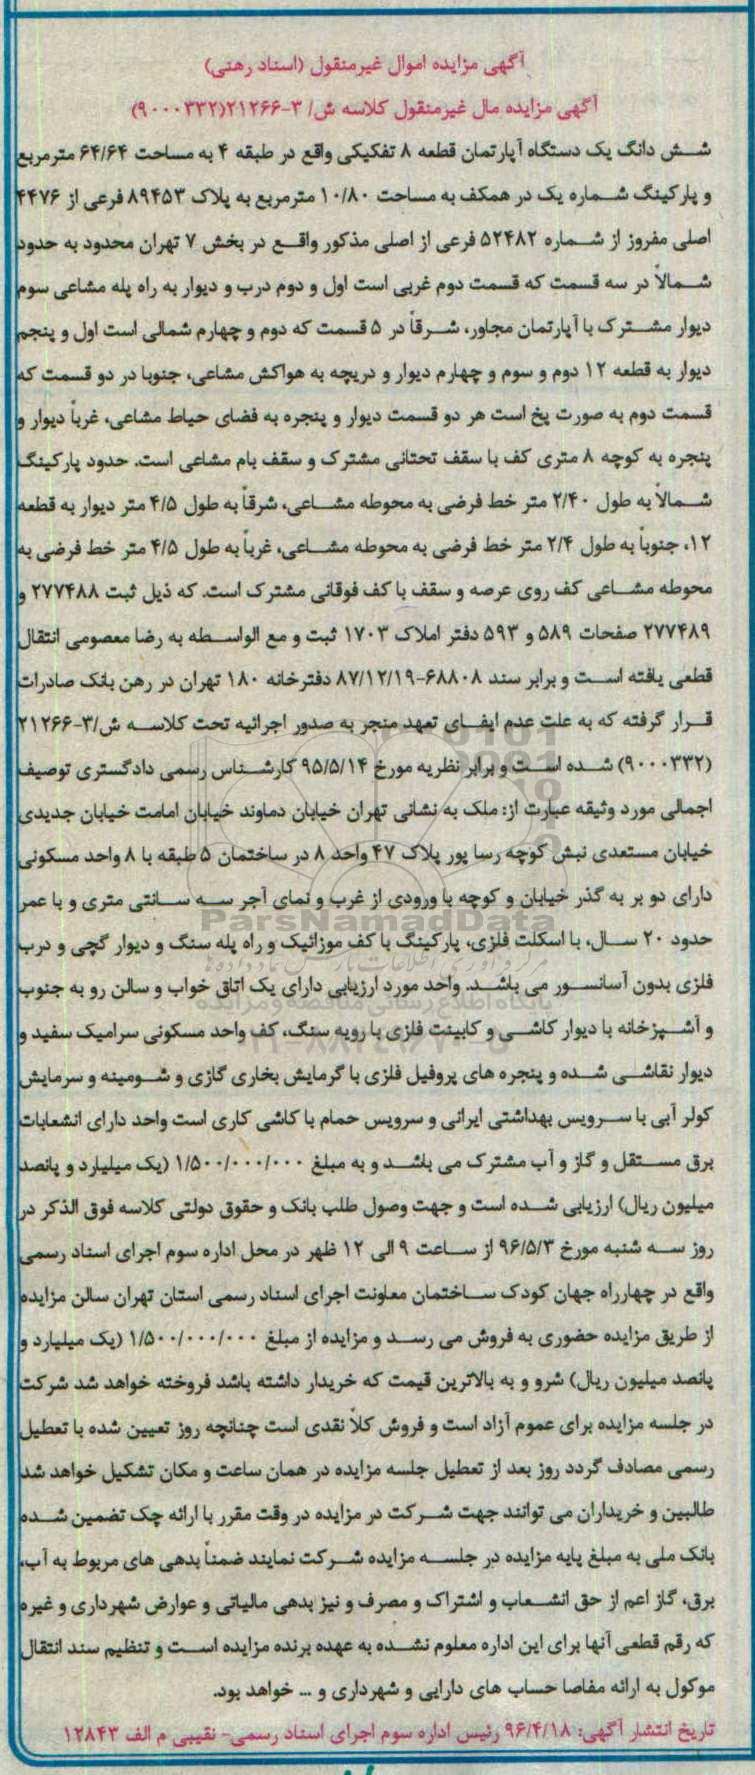 آگهی مزایده اموال غیرمنقول (اسناد رهنی)
آگهی مزایده مال غیرمنقول کلاسه ش/ ۳-۲۱۲۶۶(۹۰۰۰۳۳۲)
شش دانگ یک دستگاه آپارتمان قطعه ۸ تفکیکی واقع در طبقه ۴ به مساحت ۶۴/۶۴ مترمربع
و پارکینگ شماره یک در همکف به مساحت ۱۰/۸۰ مترمربع به پلاک ۸۹۴۵۳ فرعی از ۴۴۷۶
اصلی مفروز از شماره ۵۲۴۸۲ فرعی از اصلی مذکور واقع در بخش ۷ تهران محدود به حدود
شمالاً در سه قسمت که قسمت دوم غربی است اول و دوم درب و دیوار به راه پله مشاعی سوم
دیوار مشترک با آپارتمان مجاور، شرقاً در ۵ قسمت که دوم و چهارم شمالی است اول و پنجم
دیوار به قطعه ۱۲ دوم و سوم و چهارم دیوار و دریچه به هواکش مشاعی، جنوبا در دو قسمت که
قسمت دوم به صورت پخ است هر دو قسمت دیوار و پنجره به فضای حیاط مشاعی، غرباً دیوار و
پنجره به کوچه ۸ متری کف با سقف تحتانی مشترک و سقف بام مشاعی است. حدود پارکینگ
شمالاً به طول ۲/۴۰ متر خط فرضی به محوطه مشاعی، شرقاً به طول ۴/۵ متر دیوار به قطعه
۱۲، جنوباً به طول ۲/۴ متر خط فرضی به محوطه مشاعی، غرباً به طول ۴/۵ متر خط فرضی به
محوطه مشاعی کف روی عرصه و سقف با کف فوقانی مشترک است. که ذیل ثبت ۲۷۷۴۸۸ و
۲۷۷۴۸۹ صفحات ۵۸۹ و ۵۹۳ دفتر املاک ۱۷۰۳ ثبت و مع الواسطه به رضا معصومی انتقال
قطعی یافته است و برابر سند ۶۸۸۰۸-۸۷/۱۲/۱۹ دفترخانه ۱۸۰ تهران در رهن بانک صادرات
قرار گرفته که به علت عدم ایفای تعهد منجر به صدور اجرائیه تحت کلاسه ش/۳-۲۱۲۶۶
(۹۰۰۰۳۳۲) شده است و برابر نظریه مورخ ۹۵/۵/۱۴ کارشناس رسمی دادگستری توصیف
اجمالی مورد وثیقه عبارت از: ملک به نشانی تهران خیابان دماوند خیابان امامت خیابان جدیدی
خیابان مستعدی نبش کوچه رسا پور پلاک ۴۷ واحد ۸ در ساختمان ۵ طبقه با ۸ واحد مسکونی
دارای دو بر به گذر خیابان و کوچه با ورودی از غرب و نمای آجر سه سانتی متری و با عمر
حدود ۲۰ سال، با اسکلت فلزی، پارکینگ با کف موزائیک و راه پله سنگ و دیوار گچی و درب
فلزی بدون آسانسور می باشد. واحد مورد ارزیابی دارای یک اتاق خواب و سالن رو به جنوب
و آشپزخانه با دیوار کاشی و کابینت فلزی با رویه سنگ، کف واحد مسکونی سرامیک سفید و
دیوار نقاشی شده و پنجره های پروفیل فلزی با گرمایش بخاری گازی و شومینه و سرمایش
کولر آبی با سرویس بهداشتی ایرانی و سرویس حمام با کاشی کاری است واحد دارای انشعابات
برق مستقل و گاز و آب مشترک می باشد و به مبلغ ۱/۵۰۰/۰۰۰/۰۰۰ (یک میلیارد و پانصد
میلیون ریال) ارزیابی شده است و جهت وصول طلب بانک و حقوق دولتی کلاسه فوق الذکر در
روز سه شنبه مورخ ۹۶/۵/۳ از ساعت ۹ الی ۱۲ ظهر در محل اداره سوم اجرای اسناد رسمی
واقع در چهارراه جهان کودک ساختمان معاونت اجرای اسناد رسمی استان تهران سالن مزایده
از طریق مزایده حضوری به فروش می رسد و مزایده از مبلغ ۱/۵۰۰/۰۰۰/۰۰۰ (یک میلیارد و
پانصد میلیون ریال) شرو و به بالاترین قیمت که خریدار داشته باشد فروخته خواهد شد شرکت
در جلسه مزایده برای عموم آزاد است و فروش کلاً نقدی است چنانچه روز تعیین شده با تعطیل
رسمی مصادف گردد روز بعد از تعطیل جلسه مزایده در همان ساعت و مکان تشکیل خواهد شد
طالبین و خریداران می توانند جهت شرکت در مزایده در وقت مقرر با ارائه چک تضمین شده
بانک ملی به مبلغ پایه مزایده در جلسه مزایده شرکت نمایند ضمناً بدهی های مربوط به آب،
برق، گاز اعم از حق انشعاب و اشتراک و مصرف و نیز بدهی مالیاتی و عوارض شهرداری و غیره
که رقم قطعی آنها برای این اداره معلوم نشده به عهده برنده مزایده است و تنظیم سند انتقال
موکول به ارائه مفاصا حساب های دارایی و شهرداری و ... خواهد بود.
تاریخ انتشار آگهی: ۹۶/۴/۱۸ رئیس اداره سوم اجرای اسناد رسمی- نقیبی م الف ۱۲۸۴۳
ParsNamadData
پایگاه اطلاع رسانی مناقصه و مزایده